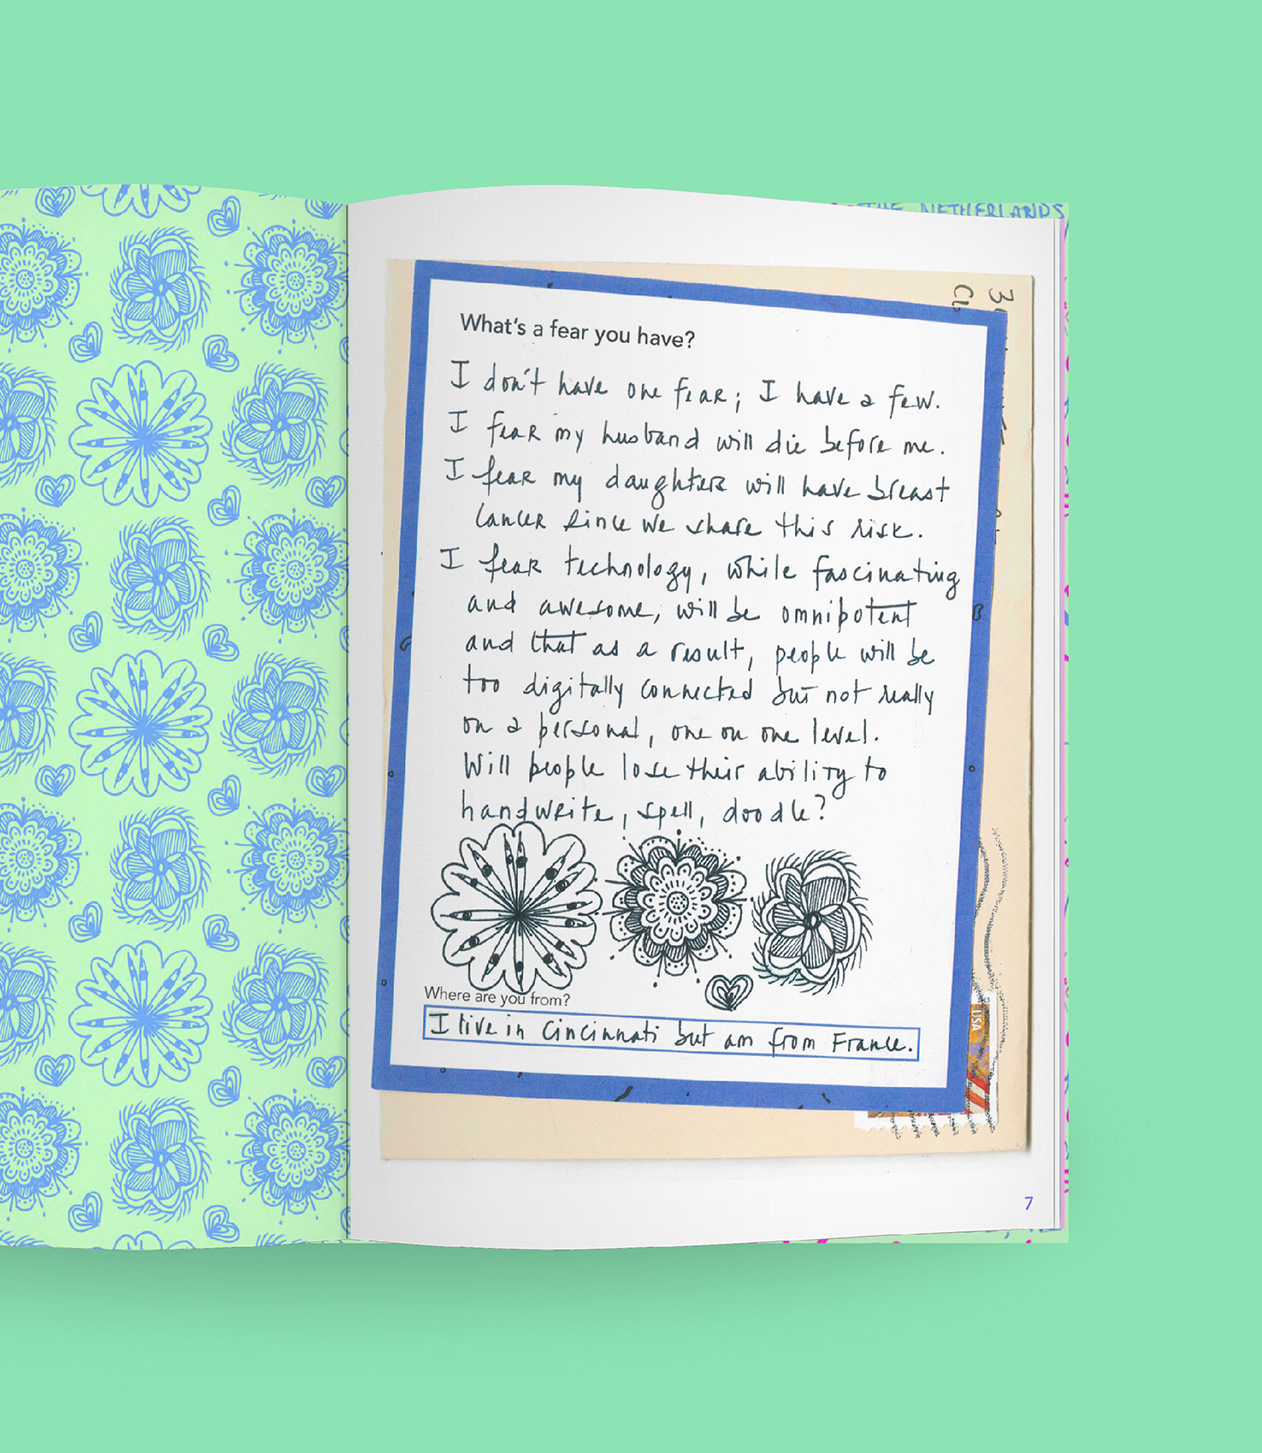 THE NETHERLANDS
What's a fear you have?
I don't have one fear; I have a few.
I fear my husband will die before me.
I fear my daughters will have breast
cancer since we share this risk.
I fear technology, while fascinating
and awesome, will be omnipotent
and that as a result, people will be
too digitally connected but not really
on a personal, one on one level.
Will people lose their ability to
handwrite, spell, doodle?
Where are you from?
I live in Cincinnati but am from France.
USA
7